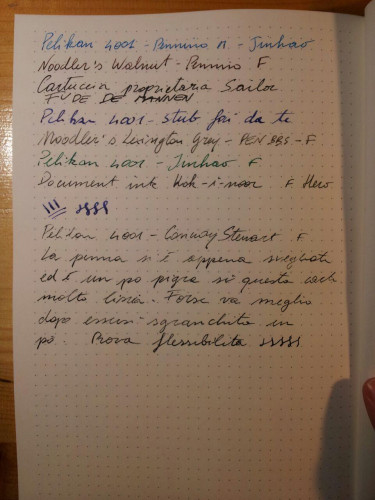 Pelikan 4001 - Pennino M. - Jinhao
Noodler's Walnut - Pennino F
Cartuccia proprietaria Sailor
FUDE DE MANNEN
Pelikan 4001 - stub fai da te
Noodler's Lexington Gray - PENBBS - F
Pelikan 4001 - Jinhao F
Document ink Koh-i-noor F Hero
Pelikan 4001 - Conway Stewart F
La penna si è appena svegliata
ed è un po pigra su questa carta
molto liscia. Forse va meglio
dopo essersi sgranchita un
pò. Prova flessibilità